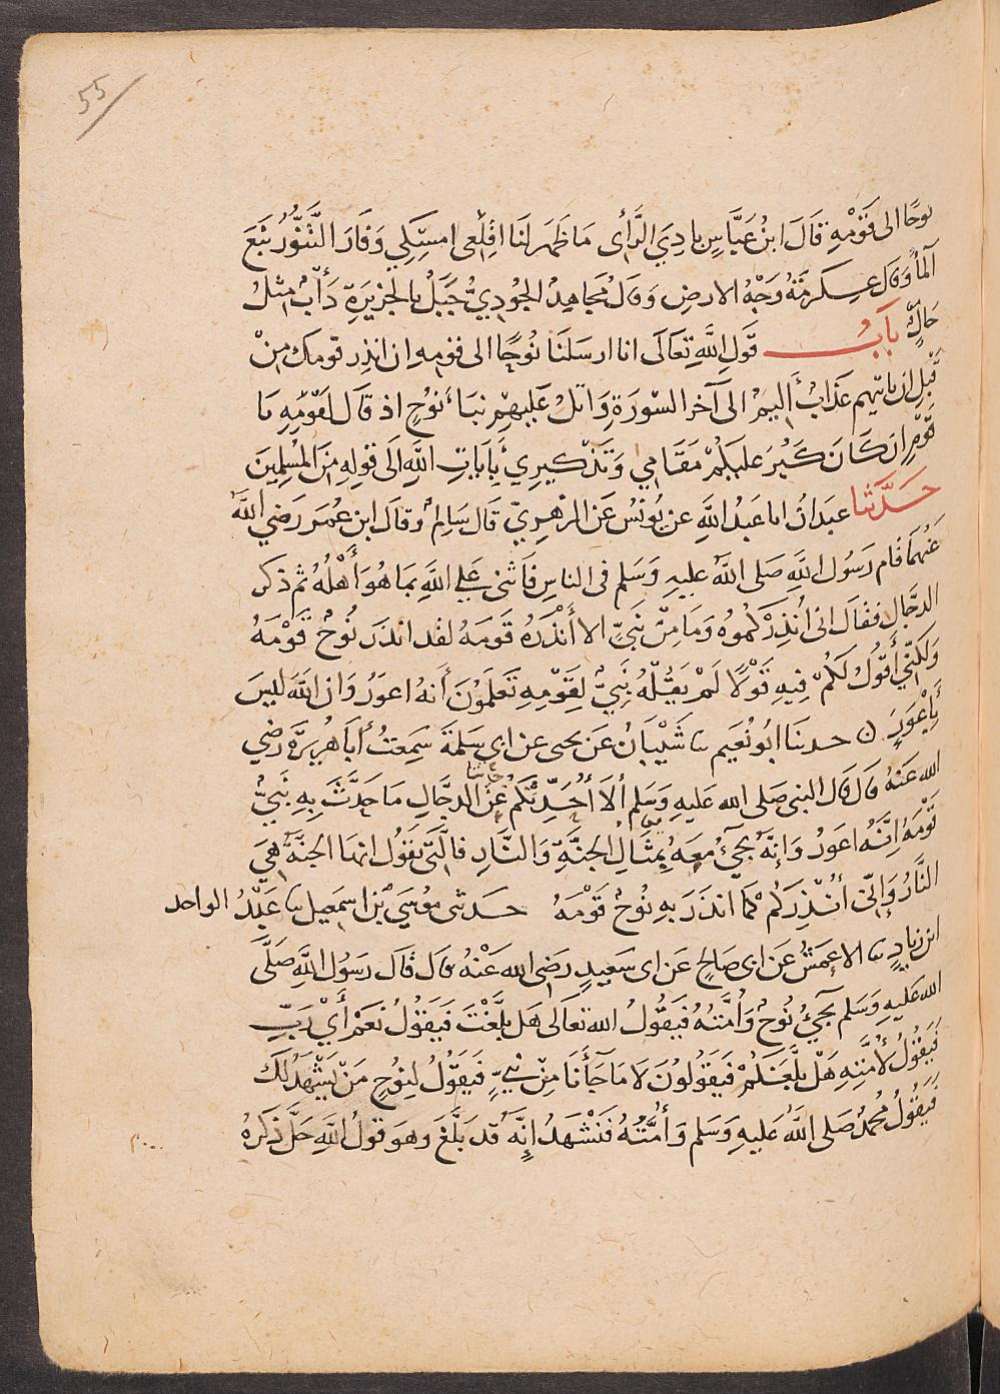 55
نوحًا الى قَوْمِهِ قَالَ ابنُ عَبَّاسٍ بادِيَ الرَّأى مَا ظَهَرَ لَنَا اقْلِعى امسِكِي وَفَارَ التَّنُّورُ نَبَعَ
المآءُ وَقَالَ عِكرِمَةُ وَجْهُ الارضِ وَقَالَ مُجَاهِدٌ الجُودِيُّ جَبَلٌ بالجزِيرَةِ دَأْبٌ مِثْلُ
حَالٍ بَابُ قَولِ اللَّهِ تَعَالَى انا ارسَلنَا نُوحًا الى قومِهِ ان انذِر قومك مِنْ
قَبْلِ ان ياتيهم عَذَابٌ أَلِيمٌ الى آخر السّورَةِ وَاتلُ عَليهِم نَبَأ نُوحٍ اذ قالَ لقَوْمِهِ يَا
قَوْمِ ان كَانَ كَبُرَ عليكُمْ مَقَامِي وَتَذْكِيرِي بآيَاتِ اللَّهِ الَى قولِهِ مِنَ المُسْلِمِينَ
حَدَّثنا عبدَانُ انا عَبدُ اللَّهِ عن يُونُسَ عَن الزهرِيّ قال سَالِمٌ وقالَ ابن عُمَر رَضِيَ اللَّهُ
عَنهُمَا قَام رَسُول اللَّهِ صَلى اللَّهُ عليهِ وَسَلم فى الناسِ فَاَثنى عَلى اللَّهِ بمَا هُوَ أَهْلُهُ ثم ذكر
الدجَّال فقالَ انى أُنذِرُكُموُهُ وَمَا مِنْ نَبيٍّ الا أَنْذَرَهُ قَومَهُ لقَد انذَرَ نُوحٌ قَوْمَهُ
وَلكِنّي أَقُولُ لَكُمْ فِيهِ قَوْلًا لَمْ يَقُلْهُ نَبِيٌّ لِقَوْمِهِ تَعلَمُونَ أَنهُ اعوَرُ وَان اللَّهَ ليسَ
بِأَعْوَرَ ن حدثنَا ابُو نُعَيم ثنا شَيْبَانُ عَن يحيى عن ابى سَلمَةَ سَمِعتُ أبَا هُريرَةَ رَضي
الله عَنهُ قَال قَال النبى صَلى الله عَليهِ وَسَلم أَلَا أُحَدِّثكُم عَن الدجَّالِ مَا حَدَّثَ بِهِ نَبيٌّ
قَوْمَهُ إِنَّهُ اعوَرُ وَإنَّهُ يجيءُ مَعَهُ بمِثَالِ الجنَّةِ وَالنَّارِ فالَّتى يَقُولُ انها الجنَّةُ هِيَ
النَّارُ وَإنّى أُنْذِرَكُم كمَا انذَرَ بهِ نُوحٌ قَوْمَهُ حدثنى مُوسَى بْن اسمَعِيل ثنا عَبْدُ الواحد
ابن زيادٍ ثنا الاعمَشُ عَن ابى صَالحٍ عَن ابى سَعِيدٍ رَضىَ الله عَنْهُ قال قَالَ رَسُول اللَّهِ صَلَّى
الله عَليهِ وَسَلم يجيءُ نُوحٌ وَأُمَّتُهُ فَيَقُولُ الله تعَالَى هَل بَلَّغْتَ فَيَقُولُ نعَمْ أَيْ رَبِّ
فَيَقُولُ لأُمَّتِهِ هَلْ بلَّغَكُمْ فَيَقُولُونَ لَا مَا جَآءَنَا مِنْ نبيٍّ فَيَقُولُ لِنُوحٍ مَنْ يَشْهَدُ لَكَ
فَيَقُولُ مُحمدٌ صَلى اللَّهُ عَليهِ وَسَلم وَأُمَّتُهُ فَنَشْهَدُ إنَّهُ قَد بَلَّغَ وهوَ قولُ اللَّهِ جَلَّ ذَكرهُ